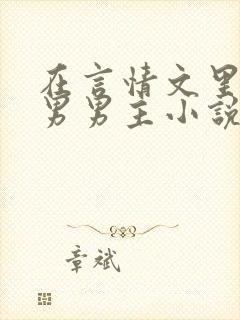 在言情文里
男男主小說
章斌